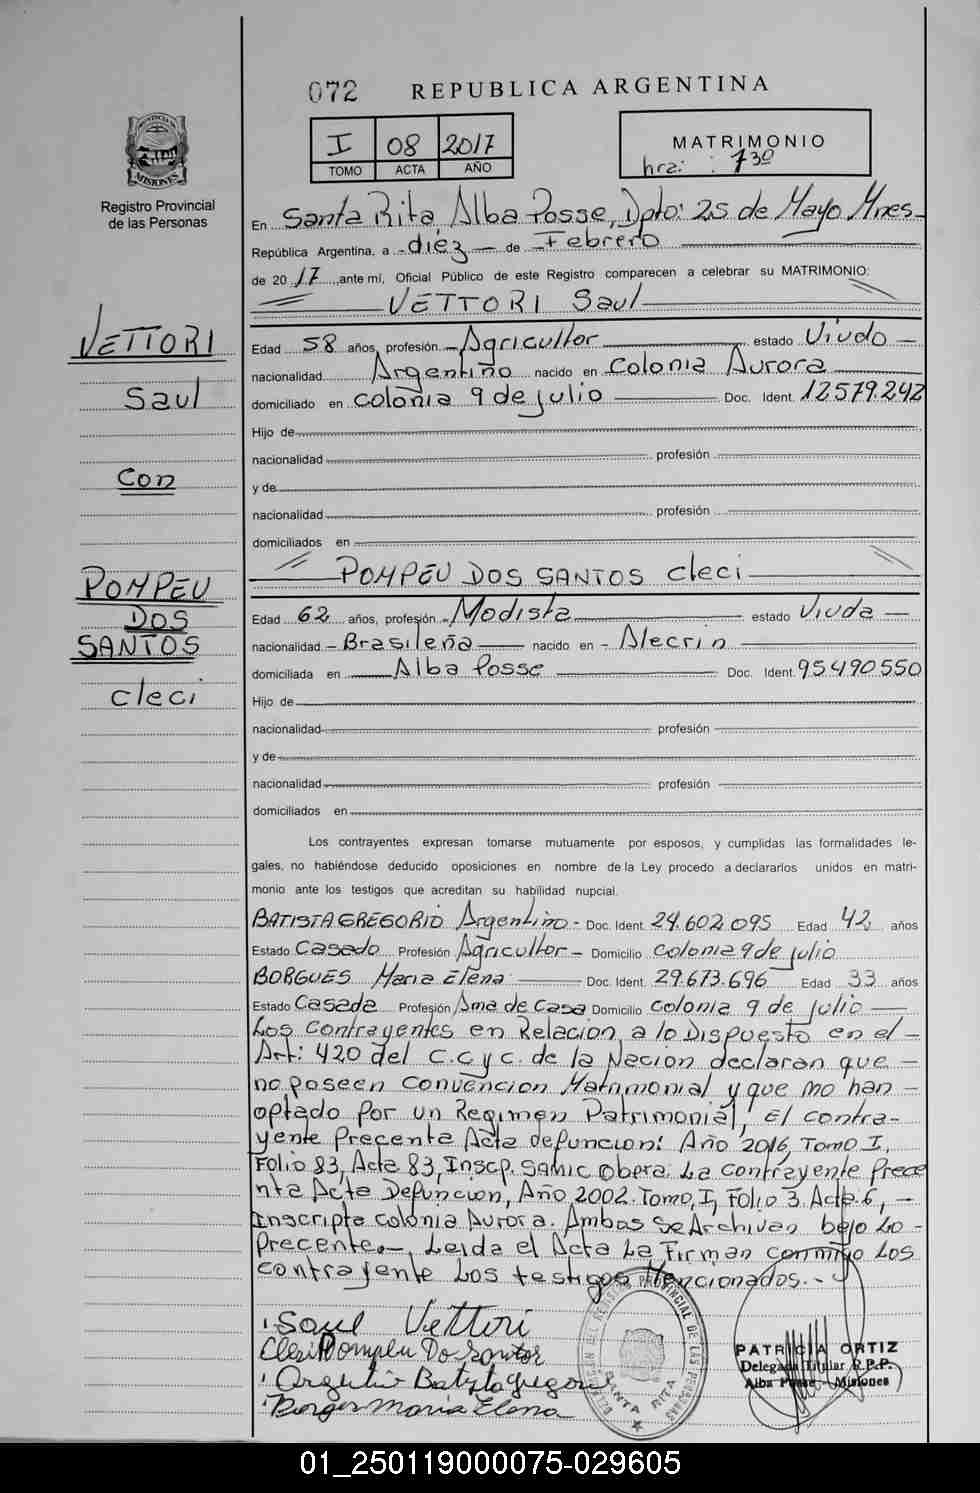 072 REPUBLICA ARGENTINA
I 08 2017
TOMO ACTA AÑO
MATRIMONIO
hra: : 7 30
PROVINCIA DE
MISIONES
Registro Provincial
de las Personas
En Santa Rita, Alba Posse, Dpto: 25 de Mayo Mnes-
República Argentina, a - diéz - de - Febrero
de 20 17 ante mí, Oficial Público de este Registro comparecen a celebrar su MATRIMONIO:
VETTORI Saul
VETTORI
Saul
Con
POMPEU
DOS
SANTOS
cleci
Edad 58 años, profesión - Agricultor estado Viudo -
nacionalidad Argentino nacido en Colonia Aurora
domiciliado en colonia 9 de julio Doc. Ident. 12.579.242
Hijo de
nacionalidad profesión
y de
nacionalidad profesión
domiciliados en
POMPEU DOS SANTOS cleci
Edad 62 años, profesión - Modista estado Viuda -
nacionalidad - Brasileña nacido en - Alecrin
domiciliada en Alba Posse Doc. Ident. 95490550
Hijo de
nacionalidad profesión
y de
nacionalidad profesión
domiciliados en
Los contrayentes expresan tomarse mutuamente por esposos, y cumplidas las formalidades le-
gales, no habiéndose deducido oposiciones en nombre de la Ley procedo a declararlos unidos en matri-
monio ante los testigos que acreditan su habilidad nupcial.
BATISTA GREGORIO Argentino - Doc. Ident. 24.602.095 Edad 42 años
Estado Casado Profesión Agricultor - Domicilio colonia 9 de julio
BORGUES Maria Elena Doc. Ident. 29.673.696 Edad 33 años
Estado Casada Profesión Ama de Casa Domicilio colonia 9 de julio -
Los contrayentes en Relacion a lo Dispuesto en el -
Art: 420 del C.C y C. de la Nacion declaran que -
no poseen convencion Matrimonial y que no han -
optado por un Regimen Patrimonial, El contra-
yente Precente Acta defuncion: Año 2016, Tomo I,
Folio 83, Acta 83, Inscp. Samic Obera. La contrayente Prece
nta Acta Defuncion, Año 2002. Tomo, I, Folio 3. Acta: 6, -
Inscripta colonia Aurora. Ambas se Archivan bajo Lo -
Precente.-, Leida el Acta La Firman conmigo Los
contrayente Los testigos Mencionados.-
Saul Vettori
Cleci Pompeu Dos Santos
Batista Gregorio
Borges Maria Elena
SANTA RITA
PATRICIA ORTIZ
Delegada Titular R.P.P.
Alba Posse - Misiones
01_250119000075-029605